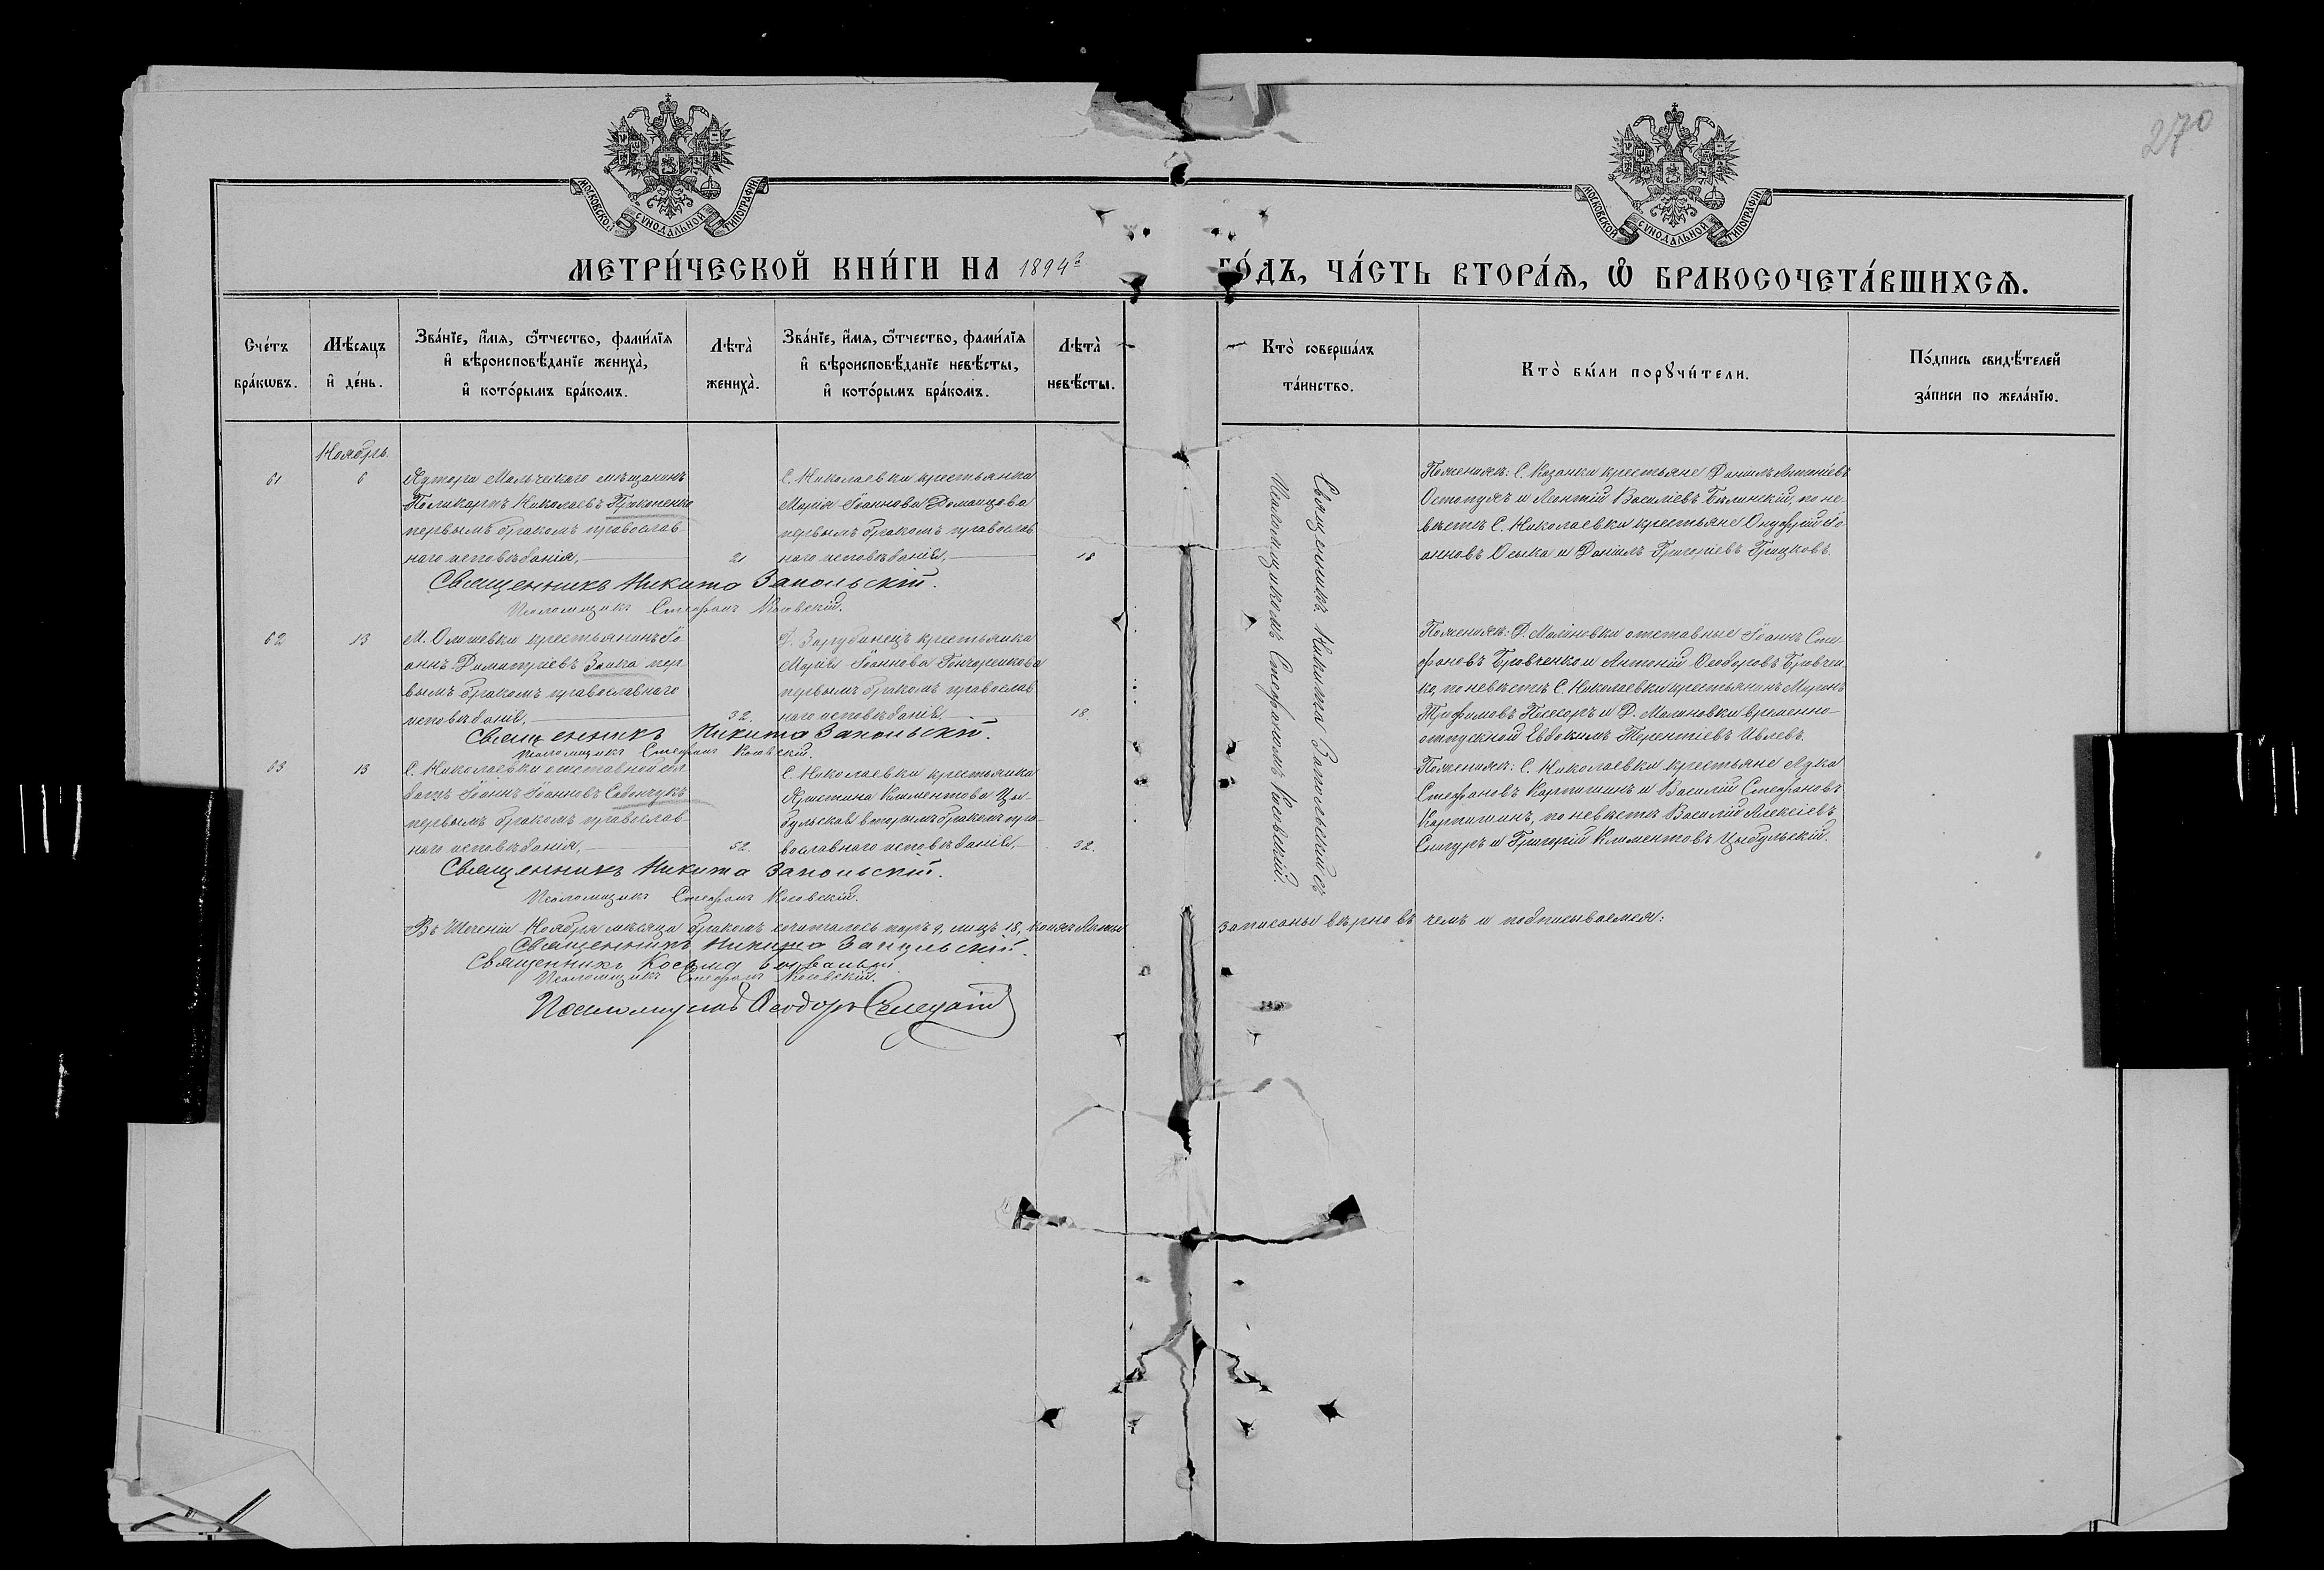 270
МОСКОВСКОЙ СѴНОДАЛЬНОЙ ТИПОГРАФІИ
МОСКОВСКОЙ СѴНОДАЛЬНОЙ ТИПОГРАФІИ
МЕТРИ́ЧЕСКОЙ КНИ́ГИ НА 1894й ГО́ДЪ, ЧА́СТЬ ВТОРА́Ѧ, Ѡ҆ БРАКОСОЧЕТА́ВШИХСѦ.
Сче́тъ бра́кѡвъ.
Мѣ́сяцъ и҆ де́нь.
Зва́нїе, и҆́мя, ѻ҆́тчество, фами́лїя и҆ вѣроисповѣ́данїе жениха̀, и҆ кото́рымъ бра́комъ.
Лѣта̀ жениха̀.
Зва́нїе, и҆́мя, ѻ҆́тчество, фами́лїя и҆ вѣроисповѣ́данїе невѣ́сты, и҆ кото́рымъ бра́комъ.
Лѣта̀ невѣ́сты.
Кто̀ соверша́лъ та́инство.
Кто̀ бы́ли порꙋчи́тели.
По́дпись свидѣ́телей за́писи по жела́нїю.
Ноябрь.
61
6
Хутора Мальческаго мѣщанинъ
Поликарпъ Николаевъ Прокопенко
первымъ бракомъ православ
наго исповѣданія,
21
С. Николаевки крестьянка
Марія Іоаннова Доманцова
первымъ бракомъ православ
наго исповѣданія,
18
Священникъ Никита Запольскій съ
Псаломщикомъ Стефаномъ Косовскій.
По женихѣ: С. Казанки крестьяне Даніилъ Антоніевъ
Остапухъ и Леонтій Василіевъ Билинскій, по не
вѣстѣ С. Николаевки крестьяне Онуфрій Іо
анновъ Осыка и Даніилъ Григоріевъ Грицковъ.
Священникъ Никита Запольскій.
Псаломщикъ Стефанъ Косовскій.
62
13
М. Олишевки крестьянинъ Іо
аннъ Димитріевъ Заика пер
вымъ бракомъ православнаго
исповѣданія,
32.
Д. Зарубинецъ крестьянка
Марія Іоаннова Гончаренкова
первымъ бракомъ православ
наго исповѣданія,
18.
По женихѣ: Д. Малиновки отставные Іоаннъ Сте
фановъ Бровченко и Антоній Ѳеодоровъ Бровчен
ко, по невѣстѣ С. Николаевки крестьянинъ Миронъ
Трофимовъ Посесоръ и Д. Малиновки временно
отпускной Евдокимъ Терентіевъ Ивлевъ.
Священникъ Никита Запольскій.
Псаломщикъ Стефанъ Косовскій.
63
13
С. Николаевки отставной сол
датъ Іоаннъ Іоанновъ Савончукъ
первымъ бракомъ православ
наго исповѣданія,
52.
С. Николаевки крестьянка
Христина Климентова Цы
бульская вторымъ бракомъ пра
вославнаго исповѣданія,
32.
По женихѣ: С. Николаевки крестьяне Лука
Стефановъ Карпишинъ и Василій Стефановъ
Карпишинъ, по невѣстѣ Василій Алексіевъ
Снигуръ и Григорій Климентовъ Цыбульскій.
Священникъ Никита Запольскій.
Псаломщикъ Стефанъ Косовскій.
Въ теченіи Ноября мѣсяца бракомъ сочиталось паръ 9, лицъ 18, записаны вѣрно въ чемъ и подписываемся:
Священникъ Никита Запольскій.
Священникъ Косьма
Псаломщикъ Стефанъ Косовскій.
Псаломщикъ Ѳеодоръ